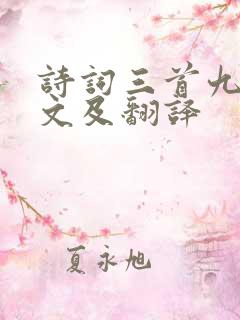 詩詞三首九
文及翻譯
夏永旭